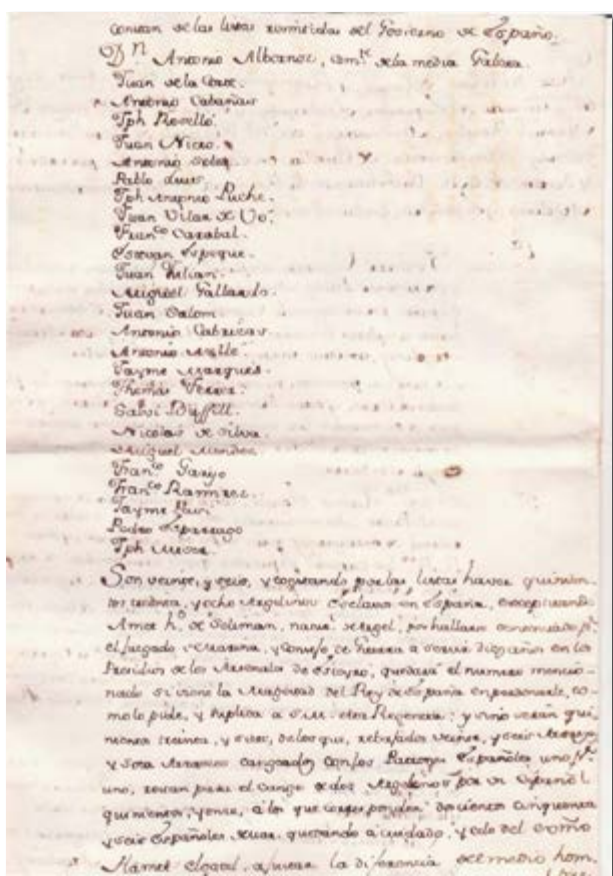 constan de las listas remitidas del Govierno de España.
Dn. Antonio Albornoz, comte. de la media Galera.
Juan de la Cruz.
Antonio Cabañas
Jph Rosello.
Juan Nieto.
Antonio Soler
Pablo Luis
Jph Antonio Puche.
Juan Vilar de Vo.
Franco Carabal.
Estevan
Juan Kilian.
Miguel Gallardo.
Juan Salom.
Antonio Cabrera
Antonio
Jayme Marques.
Thomas Ferrer.
Salvi Buffill.
Nicolas de Silva.
Miguel Mendez
Franco. Garzo
Franco Ramirez.
Jayme
Pedro Esparrago
Jph
Son veinte, y seis, y por las listas haver quinien-
tos treinta, y ocho Argelinos Esclavos en España, exceptuando
Amet ho. de Soliman, natul. de Argel, por hallarse sentenciado pr.
el juzgado de Marina, y Consejo de Guerra a servir diez años en los
Presidios de los Arsenales de quedará el numero mencio-
nado si viene la Magestad del Rey de España en perdonarle, co-
mo lo pide, y suplica a S.M. esta Regencia: y sino serán qui-
nientos treinta, y siete, de los que, rebajados veinte, y seis
y con los Españoles uno pr.
uno, restan para el cange de dos Argelinos por un Español
quinientos, y once, a los que corresponden doscientos cinquenta
y seis Españoles quedando a cuidado, y celo del
Hamet elgazal, ajustar la diferencia del medio hom.